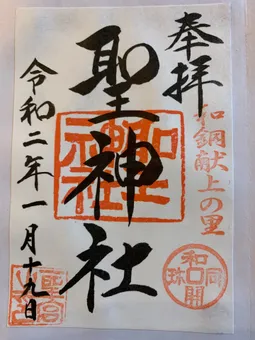 奉拝
和銅献上の里
聖神社
令和二年一月十九日
和同開珎